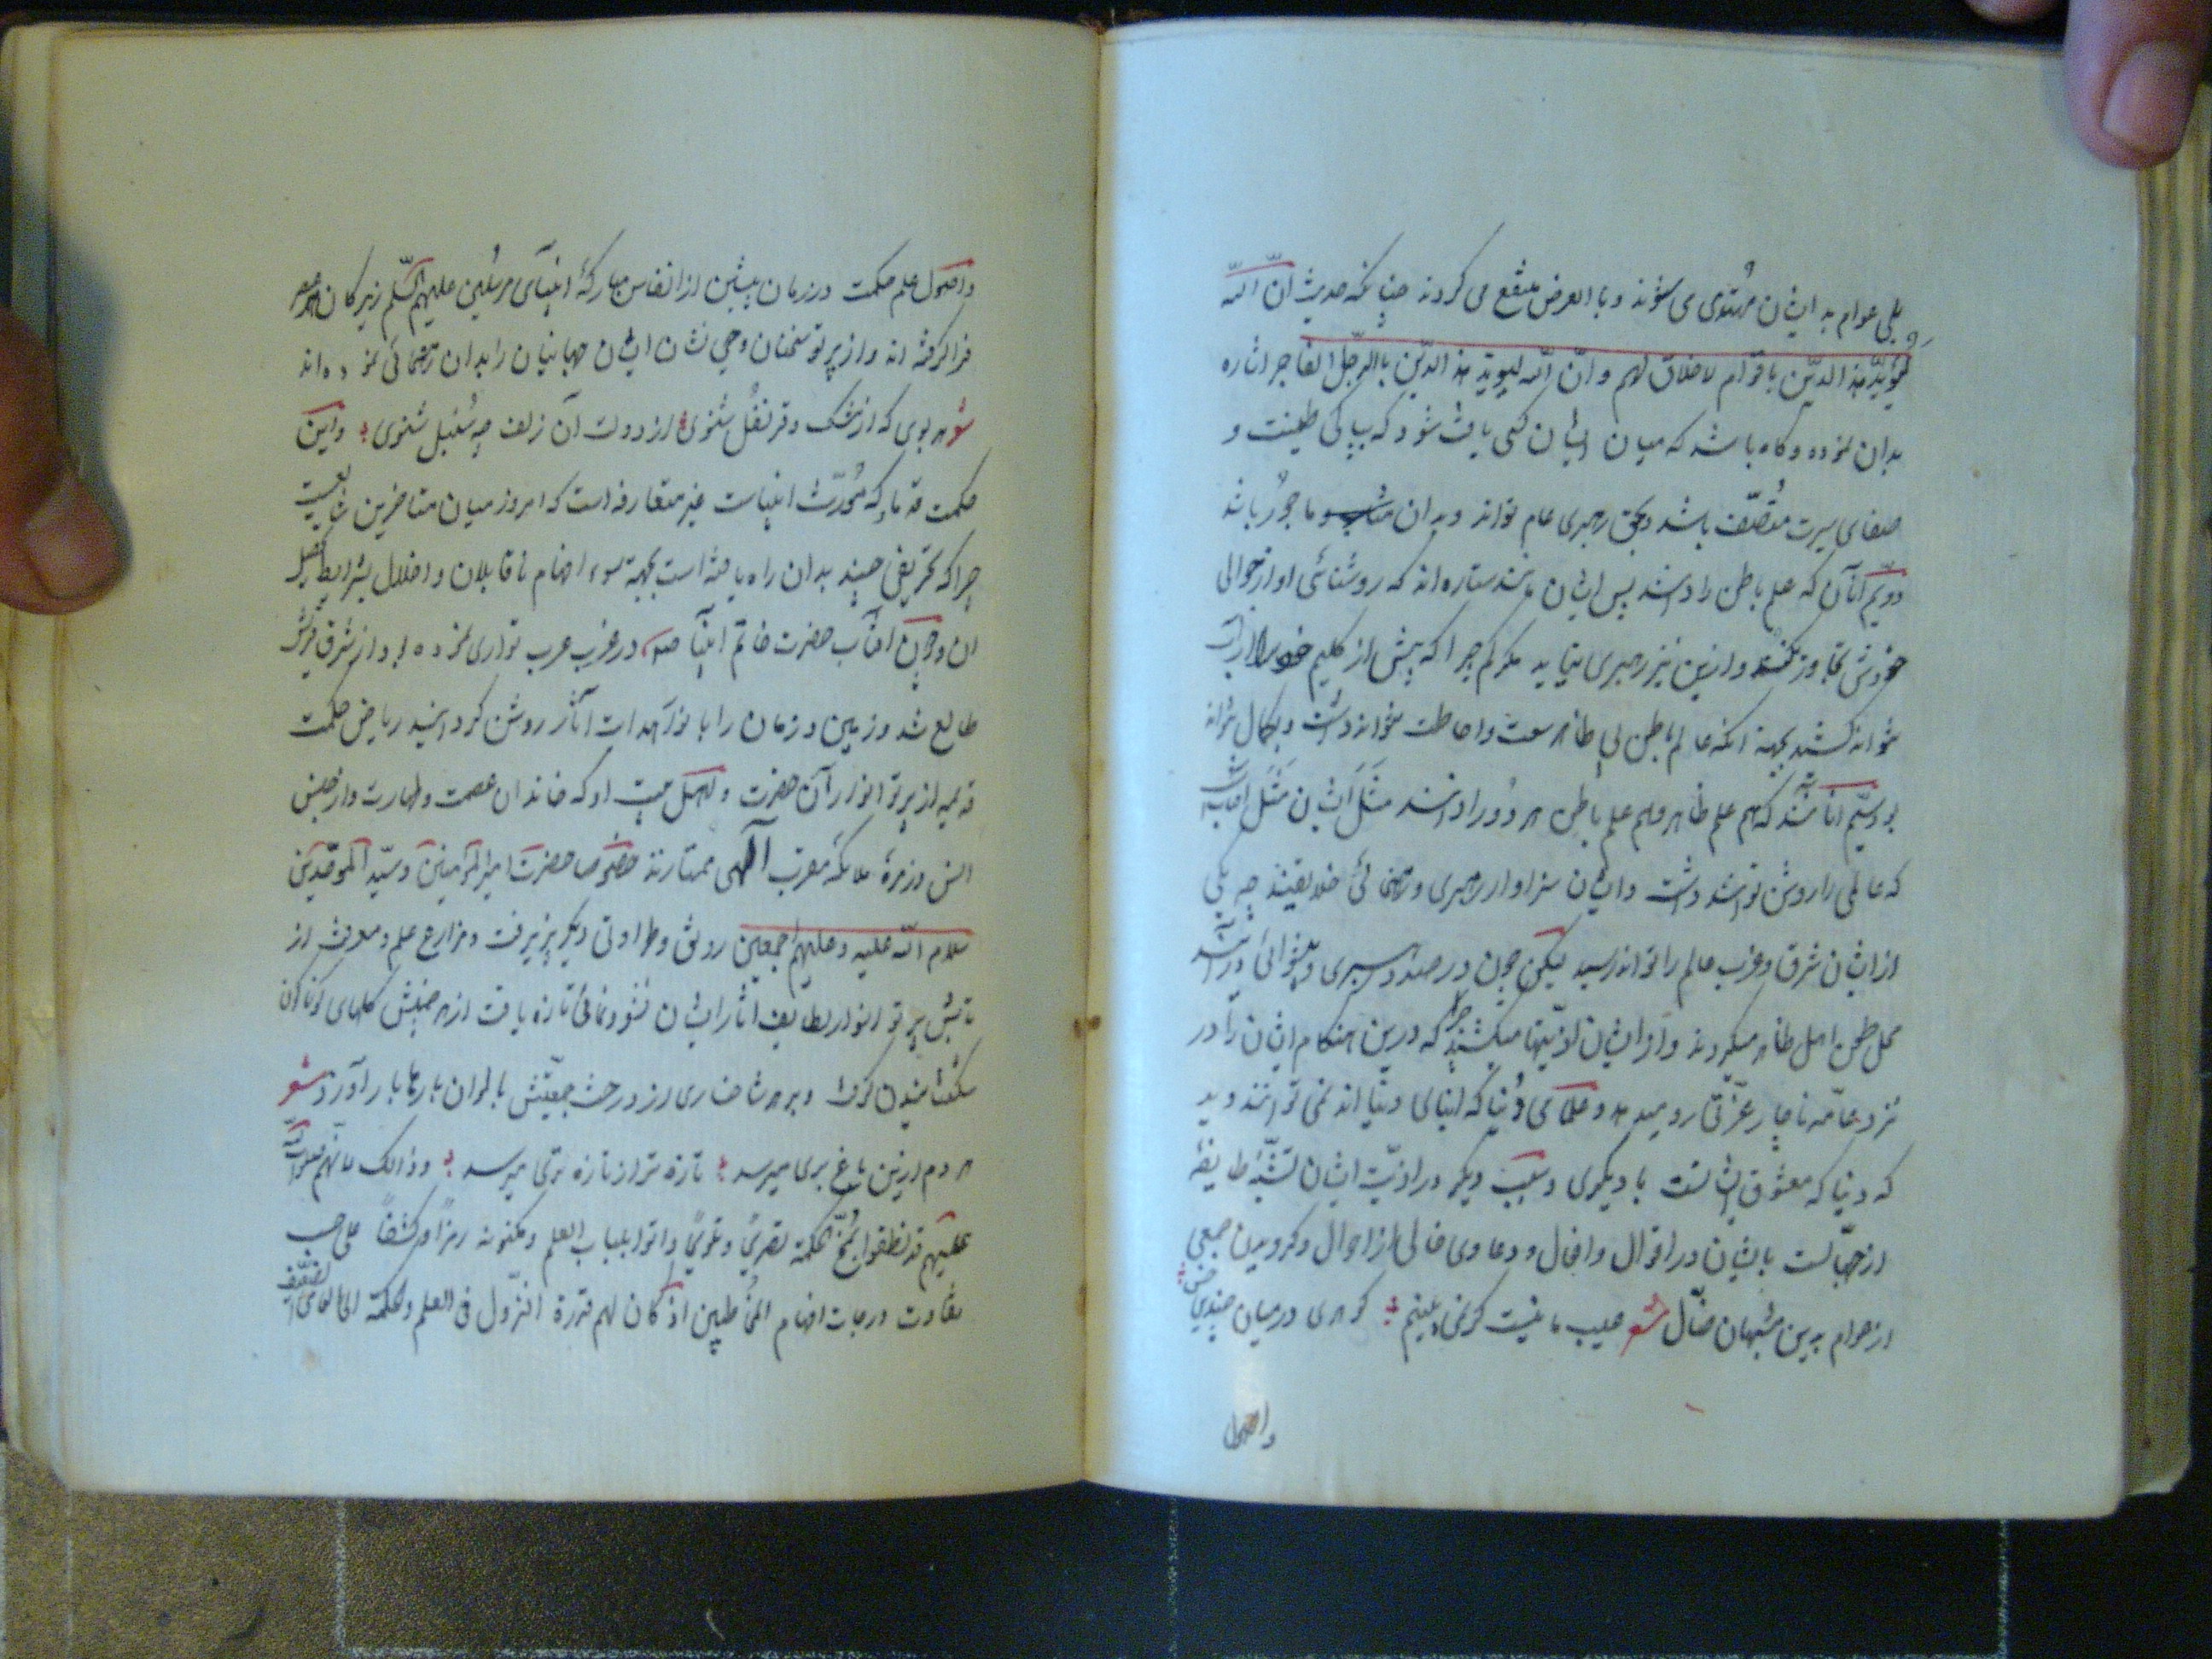 بلی عوام به ایشان مهتدی می شوند و بالعرض منتفع می کردند چنانکه حدیث ان الله
لیؤید هذا الدین باقوام لا خلاق لهم و ان الله لیؤید هذا الدین بالرجل الفاجر اشاره
بدان نموده و کاه باشد که میان ایشان کسی یافت شود که بپاکی طینت و
صفای سیرت متصف باشد رهبری عام تواند و بدان مثاب و ماجور باشد
دویم آنان که علم باطن را دانند پس ایشان مانند ستاره اند که روشنائی او از حوالی
خودش تجاوز نکند و ازین نیز رهبری نیاید مکر کم چرا که بیش از کلیم خود را از آب
نتواند کشید بجهة آنکه عالم باطن بی ظاهر سعت و احاطت نتواند داشت و بکمال نتواند
بود سیم آنانند که هم علم ظاهر و هم علم باطن هر دو را دانند مثل ایشان مثل آفتاب
که عالمی را روشن تواند داشت و ایشان سزاوار رهبری و رهنمائی خلایقند چه یکی
از ایشان شرق و غرب عالم را تواند رسید لیکن چون در صدد رهبری و پیشوائی در آیند
محل طعن اهل ظاهر میکردند و از ایشان اذیتها میکشند چرا که درین هنکام ایشان را در
نزد عامه ناچار عزتی رو میدهد و علمای دنیا که ابنای دنیا اند نمی توانند دید
که دنیا که معشوق ایشانست با دیکری و سبب دیکر در اذیت ایشان تشبه طایفه
از جهالست بایشان در اقوال و افعال و دعاوی خالی از احوال و کرویدن جمعی
از عوام بدین مشبهان ضال شعر عیب ما نیست کر نمی بینیم کوهری در میان چندین خس
واصول
واصول علم حکمت در زمان پیشین از انفاس مبارکه انبیای مرسلین علیهم السلم زیرکان هر عصر
فرا کرفته اند و از پرتو سخنان وحی نشان ایشان جهانیان را بدان رهنمائی نموده اند
شعر هر بوی که از مشک و قرنفل شنوی از دولت آن زلف چو سنبل شنوی و این
حکمت قدما که محدث انبیاست غیر متعارفه است که امروز میان متاخرین شایعست
چرا که تحریفی چند بدان راه یافته است بجهة سوء افهام ناقابلان و اخلال بشرایط تحصیل
ان و چون آفتاب حضرت خاتم انبیا در غرب عرب تواری نموده بود از شرق
طالع شد و زمین و زمان را بانوار آثار روشن کردانید ریاض حکمت
قدیمه از پرتو انوار آن حضرت و اهل بیت او که خاندان عصمت و طهارت و از جنس
انس و زمره ملائکه مقرب آلهی ممتازند خصوصا حضرت امیر المؤمنین و سید الموحدین
سلام الله علیه و علیهم اجمعین رونق و طراوتی دیکر پذیرفت و مزارع علم و معرفت از
تابش پرتو انوار لطایف آثار ایشان نشو و نمائی تازه یافت از هر چمنش کلهای کوناکون
شکفتن کرفت و بر هر شاخساری از درخت بالوان بارها بار آورد شعر
هر دم ازین باغ بری میرسد تازه تر از تازه تری میرسد و ذالک لانهم صلوات الله
علیهم قد نطقوا بمخ الحکمة تصریحا و تلویحا و اتوا بلباب العلم و مکنونه رمزا و کشفا علی حسب
تفاوت درجات افهام المخاطبین اذ کان لهم قدرة النزول فی العلم و الحکمة الی العامی الضعیف